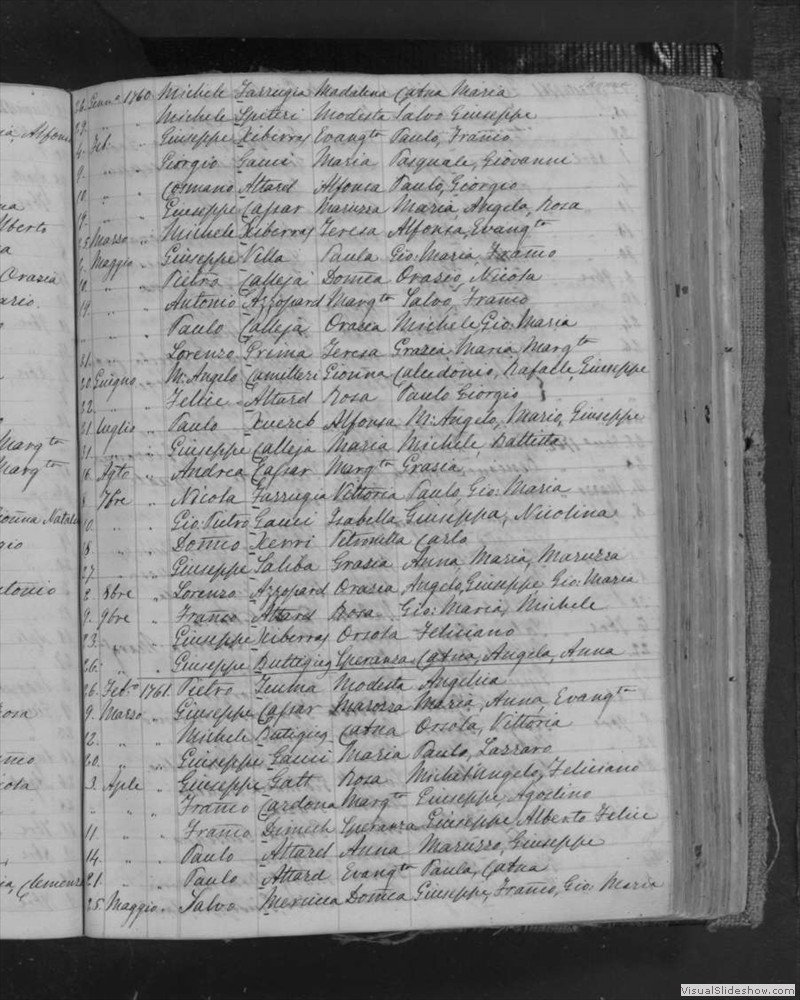 26. Genn.º 1760 Michele Farrugia Madalena Catna Maria
29. " " Michele Spiteri Modesta Salvo Giuseppe
4. Feb. " Giuseppe Xiberras Evangta Paulo, Franco
9. " " Giorgio Gauci Maria Pasquale, Giovanni
10. " " Cosmano Attard Alfonsa Paulo, Giorgio
" " Giuseppe Caspar Maruzza Maria, Angelo, Rosa
Marzo " Michele Xiberras Teresa Alfonsa, Evangta
Maggio " Giuseppe Vella Paula Gio: Maria, Franco
" " Pietro Calleja Domca Orazio, Nicola
19. " " Antonio Azzopard Margta Salvo, Franco
" " Paulo Calleja Orazia Michele, Gio: Maria
21. " " Lorenzo Prima Teresa Grazia, Maria, Margta
20. Guigno " M: Angelo Camilleri Gionna Calcedonio, Rafaele, Giuseppe
22. " " Felice Attard Rosa Paulo Giorgio
21 Luglio " Paulo Xuereb Alfonsa M: Angelo, Mario, Giuseppe
31 " " Giuseppe Calleja Maria Michele, Battista
16. Agto " Andrea Caspar Margta Grazia
8. 7bre " Nicola Farrugia Vittoria Paulo, Gio: Maria
10. " " Gio: Pietro Gauci Isabella Giuseppa, Nicolina
18. " " Domco Xerri Petronilla Carlo
27. " " Giuseppe Saliba Grazia Anna, Maria, Maruzza
2. 8bre " Lorenzo Azzopard Orazia Angelo, Giuseppe Gio: Maria
9. 9bre " Franco Attard Rosa Gio: Maria, Michele
23. " " Giuseppe Xiberras Orsola Felisiano
26. " " Giuseppe Buttigieg Speranza Catna, Angela, Anna
26. Feb.º 1761. Pietro Gemma Modesta Angelica
9. Marzo " Giuseppe Caspar Marozza Maria, Anna, Evangta
12. " " Michele Butigieg Catna Orsola, Vittoria
20. " " Giuseppe Gauci Maria Paulo, Lazzaro
3. Aple " Giuseppe Gatt Rosa Michel'Angelo, Felisiano
" " Franco Cardona Margta Giuseppe, Agostino
11. " " Franco Dimech Speranza Giuseppe, Alberto Felice
14. " " Paulo Attard Anna Maruzzo, Giuseppe
21. " " Paulo Attard Evangta Paula, Catna
25. Maggio " Salvo Mercieca Domca Giuseppe, Franco, Gio: Maria
VisualSlideshow.com